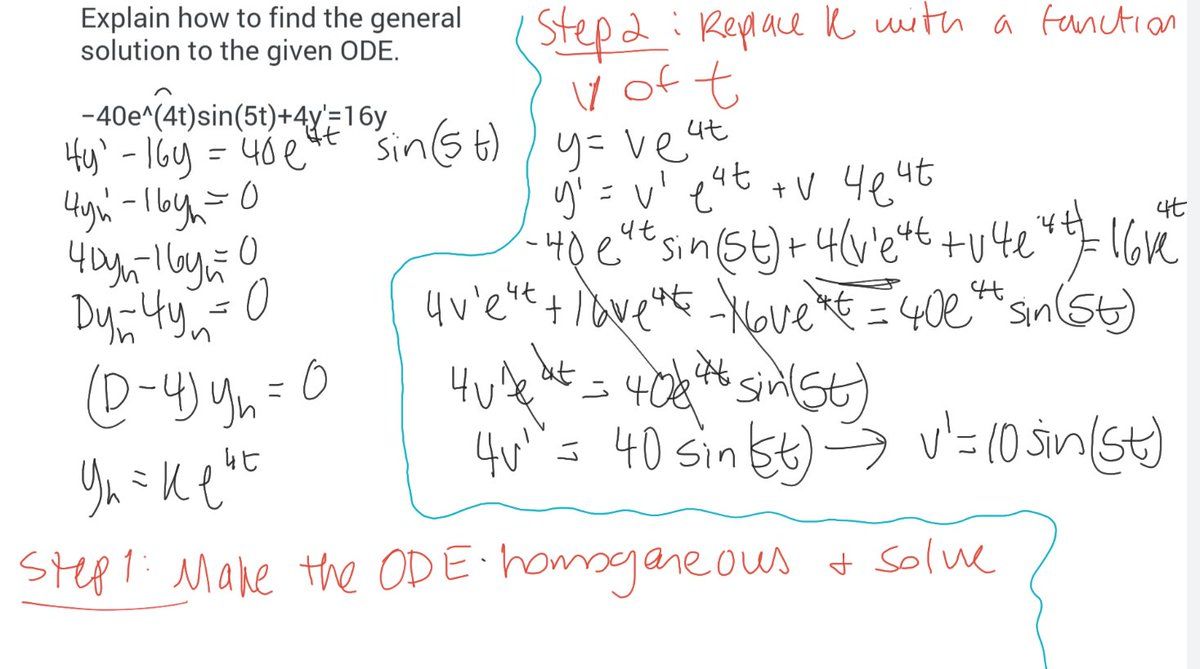 Explain how to find the general
solution to the given ODE.
-40e^(4t)sin(5t)+4y'=16y
4y' - 16y = 40e^4t sin(5t)
4yh' - 16yh = 0
4Dyh - 16yh = 0
Dyh - 4yh = 0
(D-4) yh = 0
yh = Ke^4t
Step 1: Make the ODE homogeneous + solve
Step 2: Replace K with a function
v of t
y = ve^4t
y' = v' e^4t + v 4e^4t
-40e^4t sin(5t) + 4(v'e^4t + v4e^4t) = 16ve^4t
4v'e^4t + 16ve^4t - 16ve^4t = 40e^4t sin(5t)
4v'e^4t = 40e^4t sin(5t)
4v' = 40 sin(5t) → v' = 10 sin(5t)